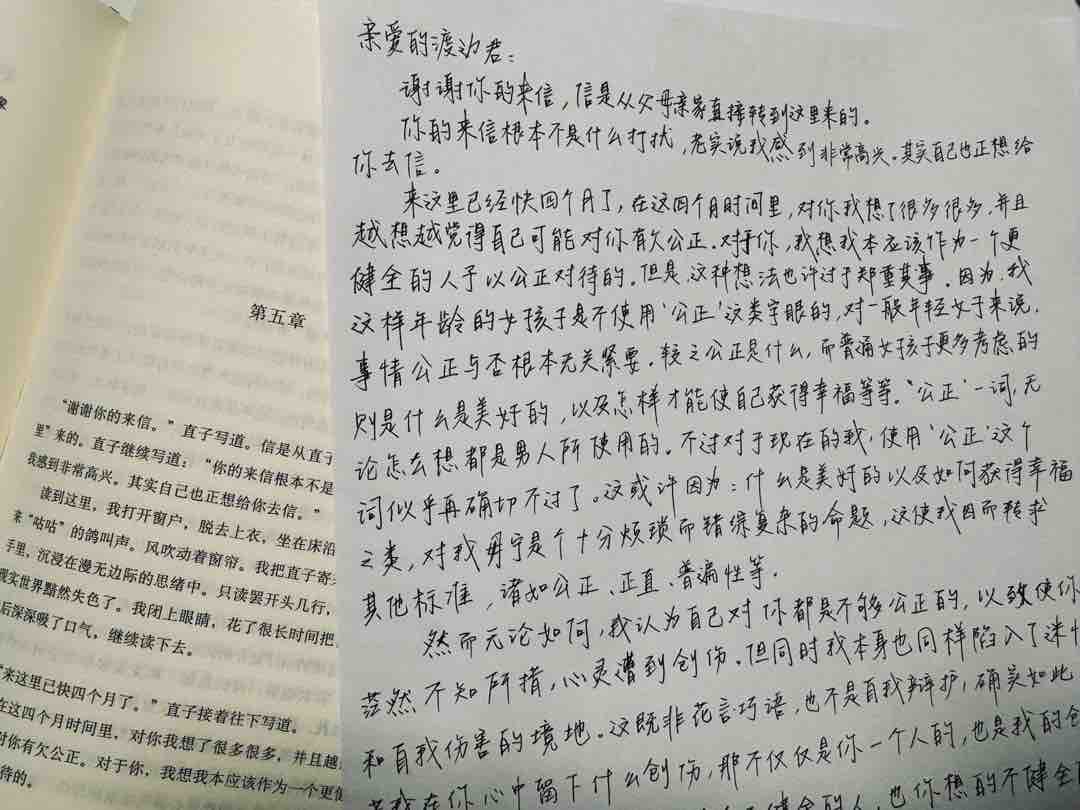 象
第五章
“谢谢你的来信。”直子写道。信是从直子
里”来的。直子继续写道：“你的来信根本不是
我感到非常高兴。其实自己也正想给你去信。”
读到这里，我打开窗户，脱去上衣，坐在床沿
来“咕咕”的鸽叫声。风吹动着窗帘。我把直子寄
手里，沉浸在漫无边际的思绪中。只读罢开头几行，
现实世界黯然失色了。我闭上眼睛，花了很长时间把
后深深吸了口气，继续读下去。
“来这里已快四个月了。”直子接着往下写道。
在这四个月时间里，对你我想了很多很多，并且越
对你有欠公正。对于你，我想我本应该作为一个更
待的。
亲爱的渡边君：
谢谢你的来信，信是从父母亲家直接转到这里来的。
你的来信根本不是什么打扰，老实说我感到非常高兴。其实自己也正想给
你去信。
来这里已经快四个月了，在这四个月时间里，对你我想了很多很多，并且
越想越觉得自己可能对你有欠公正。对于你，我想我本应该作为一个更
健全的人予以公正对待的。但是这种想法也许过于郑重其事。因为，我
这样年龄的女孩子是不使用‘公正’这类字眼的，对一般年轻女子来说，
事情公正与否根本无关紧要。较之公正是什么，而普通女孩子更多考虑的
则是什么是美好的，以及怎样才能使自己获得幸福等等。‘公正’一词，无
论怎么想都是男人所使用的。不过对于现在的我，使用‘公正’这个
词似乎再确切不过了。这或许因为：什么是美好的以及如何获得幸福
之类，对我毋宁是个十分烦琐而错综复杂的命题，这使我因而转求
其他标准，诸如公正、正直、普遍性等。
然而无论如何，我认为自己对你都是不够公正的，以致使你
茫然不知所措，心灵遭到创伤。但同时我本身也同样陷入了迷
和自我伤害的境地。这既非花言巧语，也不是自我辩护，确实如此
若我在你心中留下什么创伤，那不仅仅是你一个人的，也是我的创
健全的人，也你想的不健全